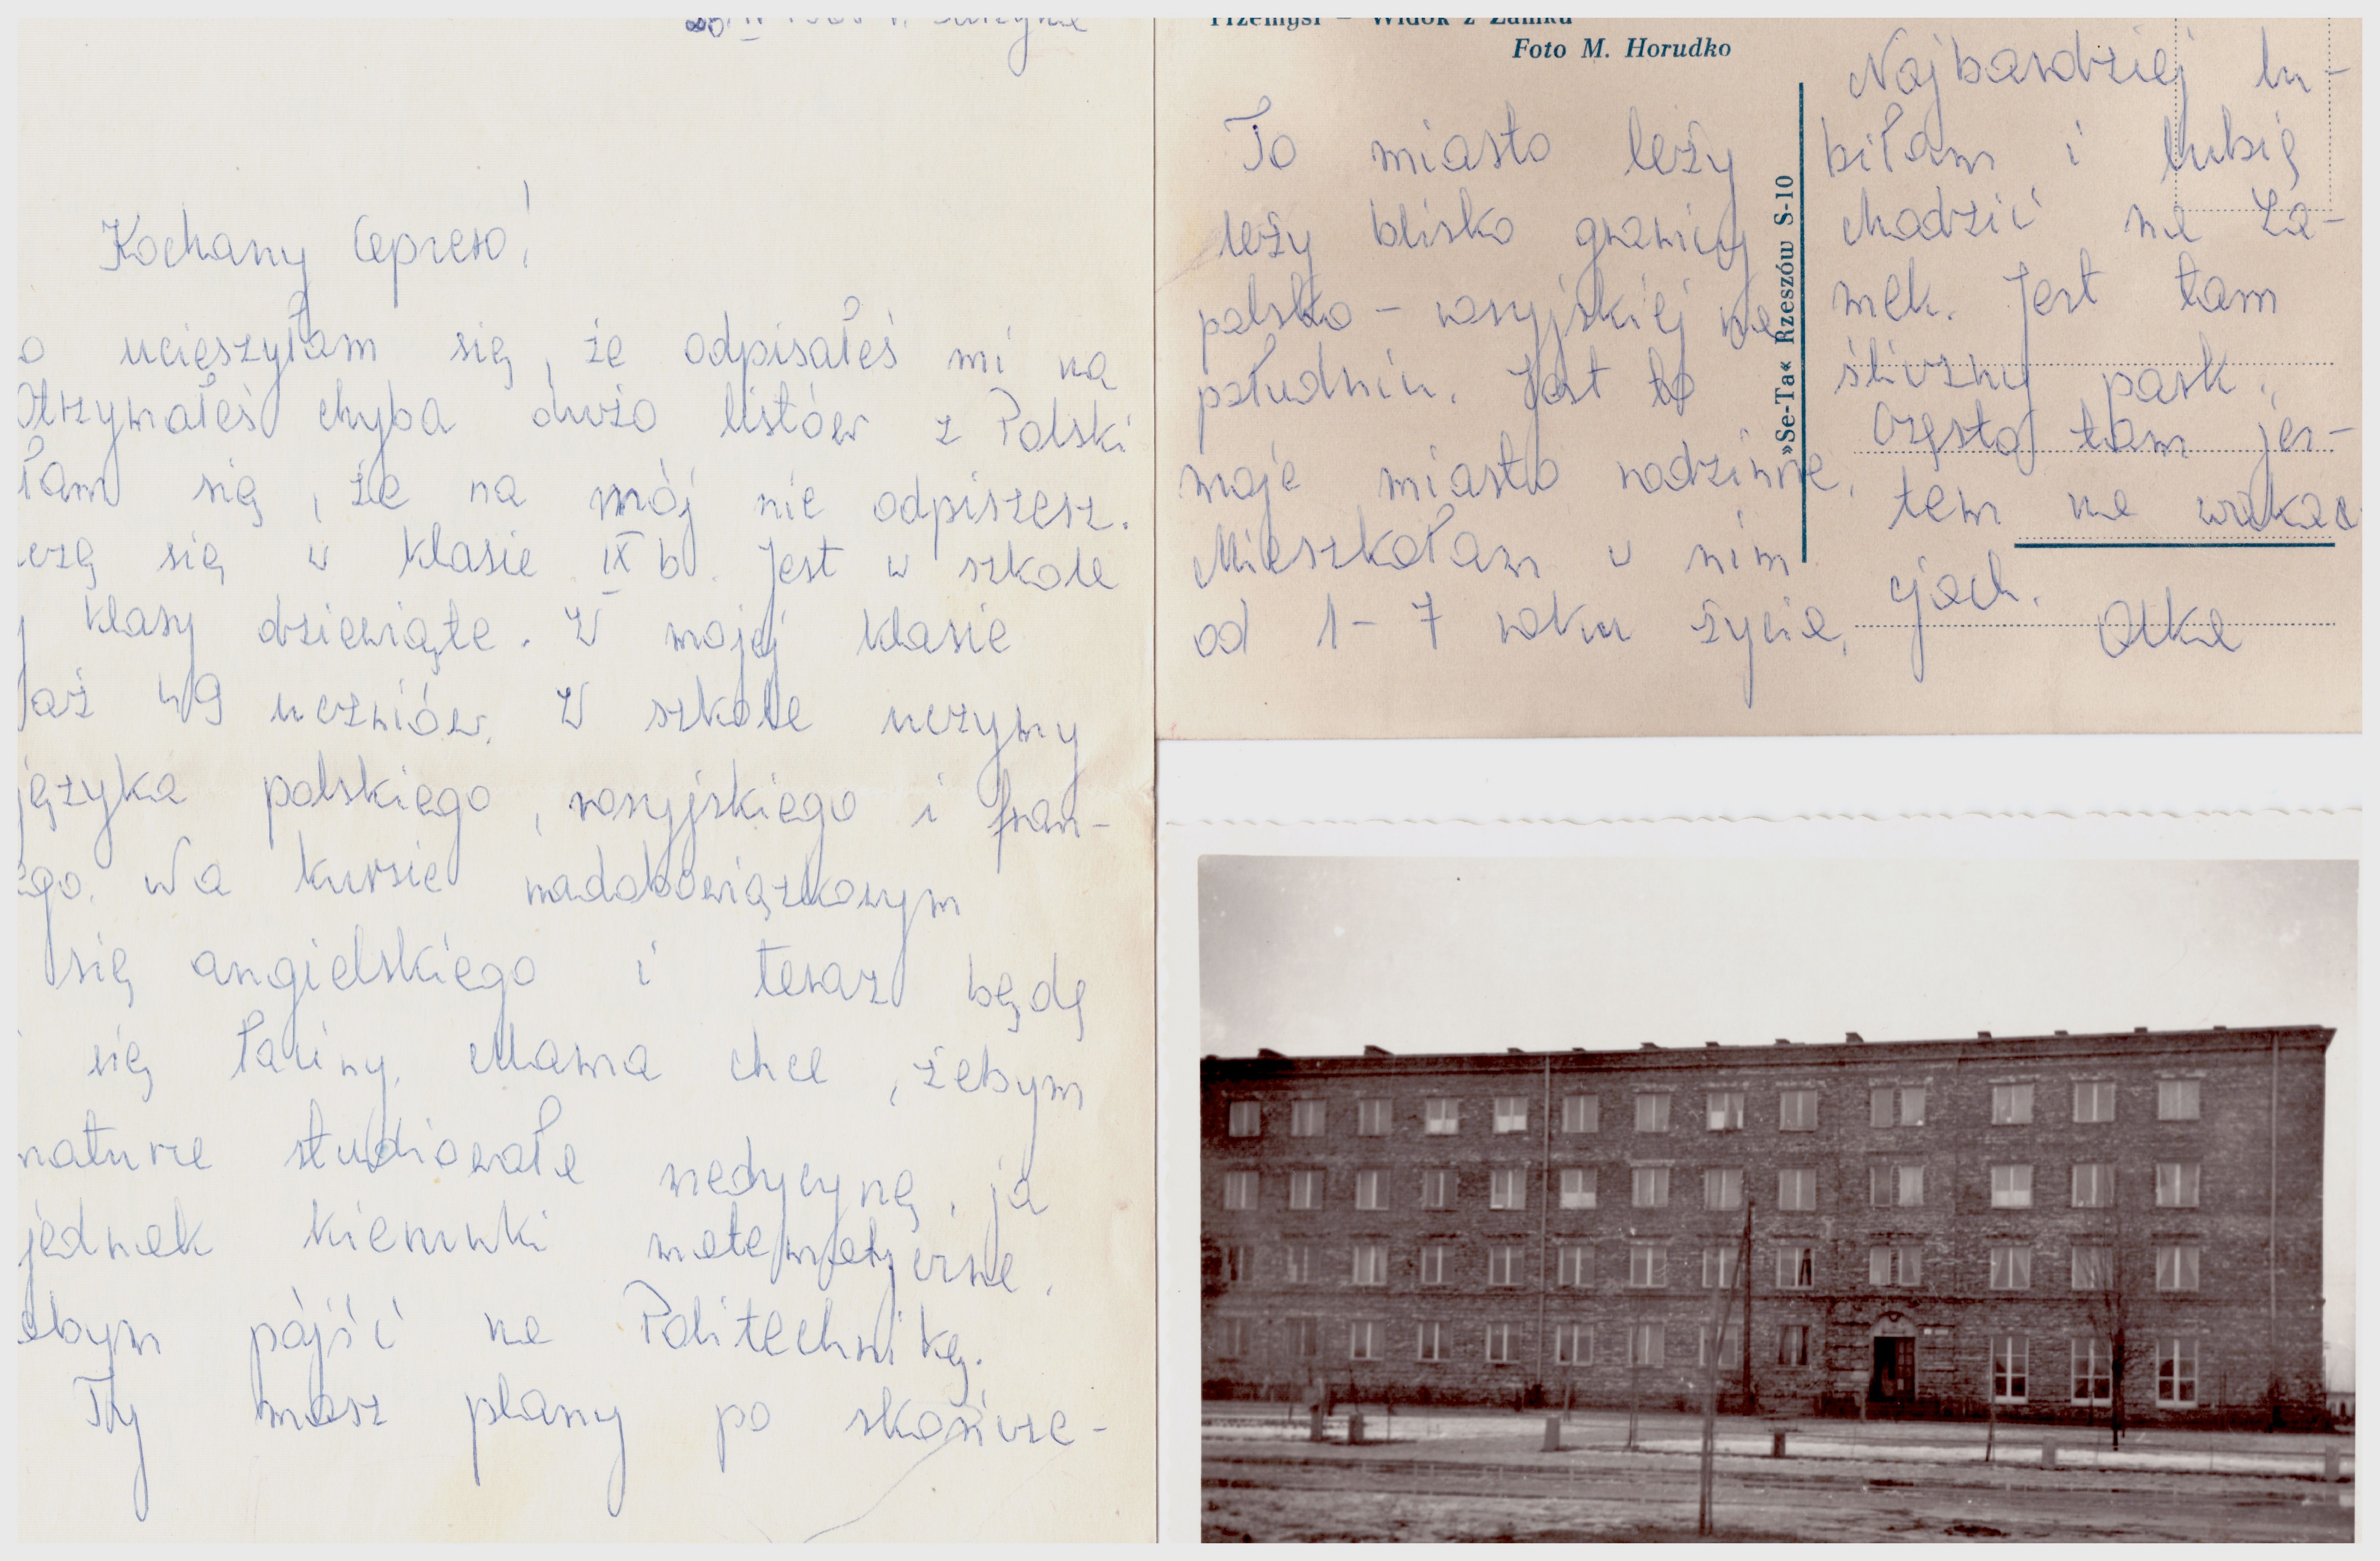 Kochany Cepreso!
o ucieszyłam się, że odpisałeś mi na
Otrzymałeś chyba dużo listów z Polski
łam się, że na mój nie odpiszesz.
czę się w klasie IX b. Jest w szkole
y klasy dziewiąte. W mojej klasie
aż 49 uczniów. W szkole uczymy
języka polskiego, rosyjskiego i fran-
ego. Na kursie nadobowiązkowym
się angielskiego i teraz będę
się łaciny. Mama chce, żebym
maturze studiowała medycynę, ja
jednak kierunki matematyczne.
abym pójść na Politechnikę.
Ty masz plany po skończe-
Przemyśl – Widok z Zamku
Foto M. Horudko
To miasto leży
leży blisko granicy
polsko – rosyjskiej na
południu. Jest to
moje miasto rodzinne.
Mieszkałam w nim
od 1 – 7 roku życia.
»Se-Ta« Rzeszów S-10
Najbardziej lu-
biłam i lubię
chodzić na Za-
mek. Jest tam
śliczny park.
Często tam jes-
tem na waka
cjach.
Alka